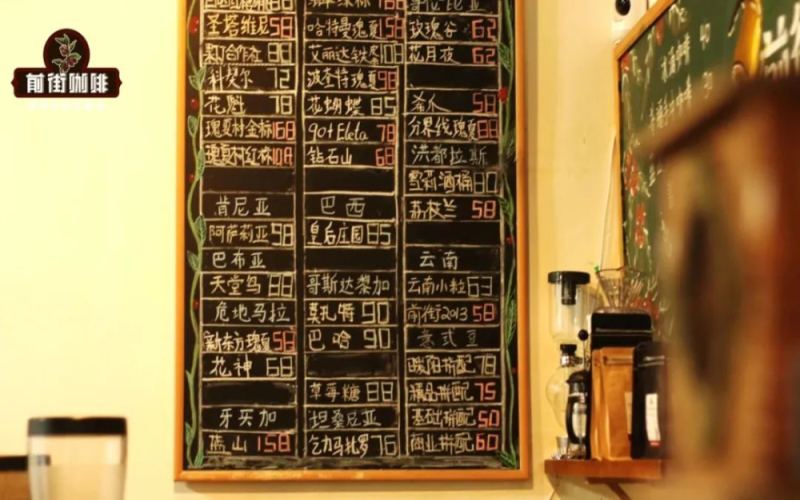 前街咖啡
圣塔维尼 58
合作社 88
科契尔 72
花魁 78
瑰夏村金标 168
瑰夏村红标
肯尼亚
阿萨莉亚 98
巴布亚
天堂鸟 88
危地马拉
新东方瑰夏 58
花神 68
牙买加
蓝山 158
哈特曼瑰夏
艾丽达 108
波奎特瑰夏 98
花蝴蝶 85
90+Eleta 78
钻石山 68
巴西
皇后庄园 85
哥斯达黎加
莫扎特 90
巴哈 90
草莓糖 88
坦桑尼亚
乞力马扎罗 76
哥伦比亚
玫瑰谷 62
花月夜 62
58
分界线瑰夏 88
洪都拉斯
雪莉酒桶 80
荔枝兰 58
云南
云南小粒 63
前街2013 58
意式豆
暖阳拼配 78
精品拼配 75
基础拼配 50
商业拼配 60
前街